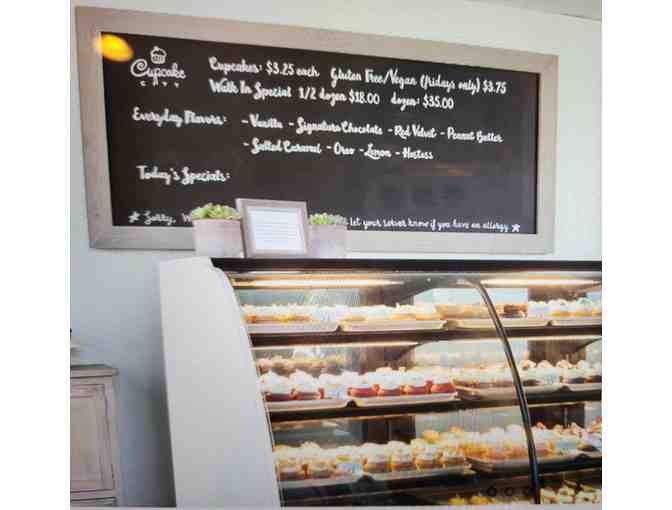 Cupcake
CAFE
Cupcakes: $3.25 each Gluten Free/Vegan (fridays only) $3.75
Walk In Special 1/2 dozen $18.00 dozen: $35.00
Everyday Flavors: - Vanilla - Signature Chocolate - Red Velvet - Peanut Butter
- Salted Caramel - Oreo - Lemon - Hostess
Today's Specials:
★ Sorry, let your server know if you have an allergy ★